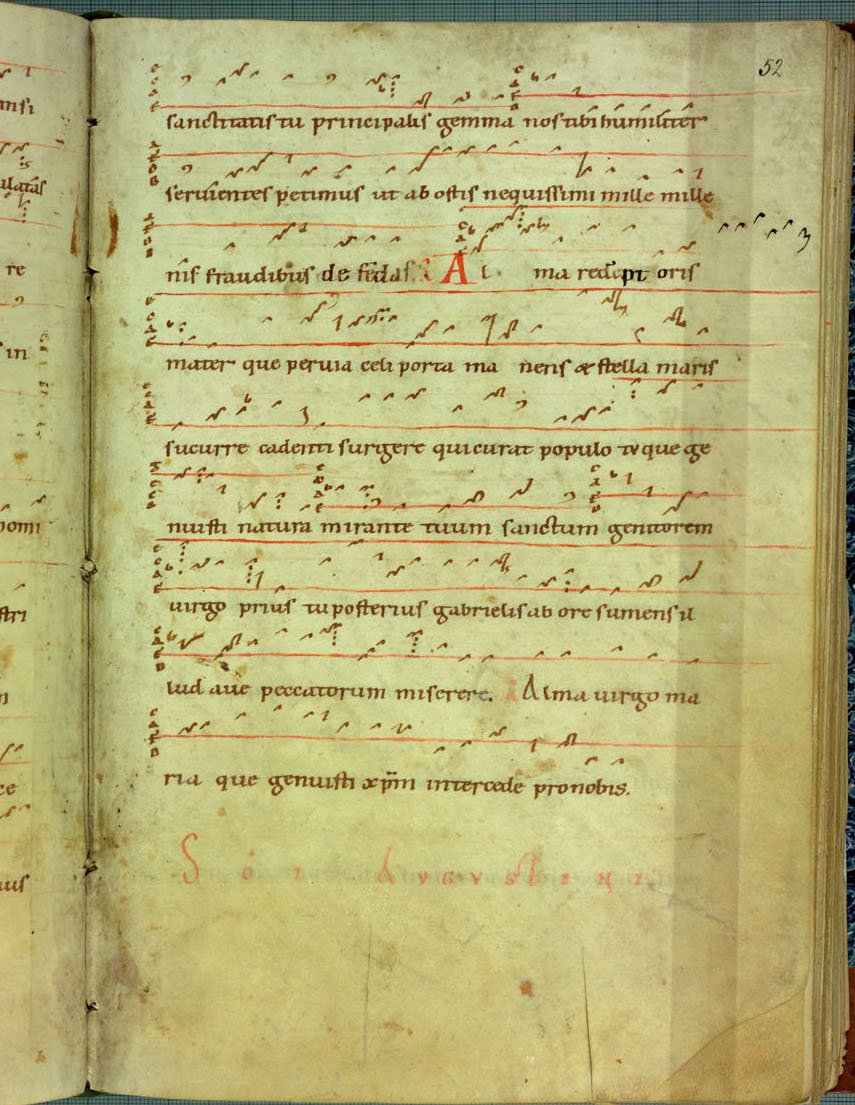 52
sanctitatis tu principalis gemma nos tibi humiliter
servientes petimus ut ab ostis nequissimi mille mille
nis fraudibus defendas A l ma redēpt oris
mater que pervia celi porta ma nens & stella maris
sucurre cadenti surgere qui curat populo tu que ge
nuisti natura mirante tuum sanctum genitorem
virgo prius tu posterius gabrielis ab ore sumens il
lud ave peccatorum miserere. Alma virgo ma
ria que genuisti xp̄m intercede pro nobis.
re
in
omi
stri
ce